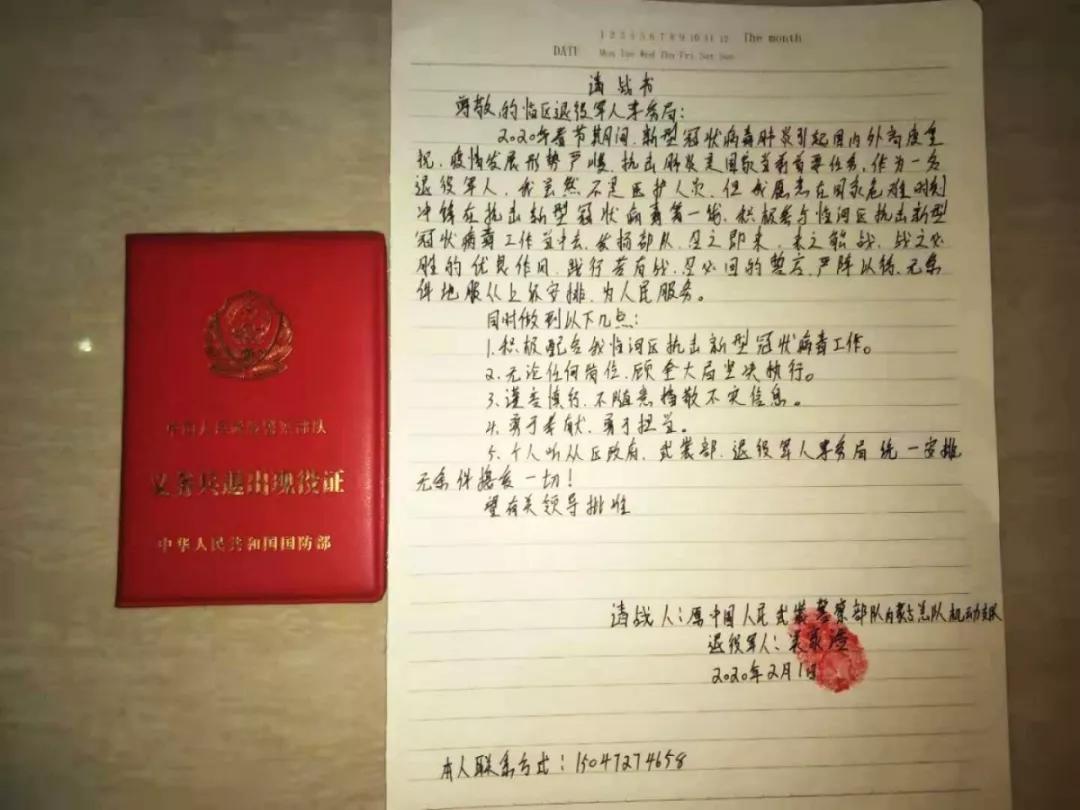 中国人民武装警察部队
义务兵退出现役证
中华人民共和国国防部
1 2 3 4 5 6 7 8 9 10 11 12 The month
DATE Mon Tue Wed Thu Fri Sat Sun
请战书
尊敬的临区退役军人事务局:
2020年春节期间,新型冠状病毒肺炎引起国内外高度重
视,疫情发展形势严峻,抗击肺炎是国家当前首要任务,作为一名
退役军人,我虽然不是医护人员,但我愿意在国家危难时刻
冲锋在抗击新型冠状病毒第一线,积极参与临河区抗击新型
冠状病毒工作当中去,发扬部队,召之即来,来之能战,战之必
胜的优良作风,践行若有战,召必回的誓言,严阵以待,无条
件地服从上级安排,为人民服务。
同时做到以下几点:
1.积极配合我临河区抗击新型冠状病毒工作。
2.无论任何岗位,顾全大局坚决执行。
3.谨言慎行,不随意播散不实信息。
4.勇于奉献,勇于担当。
5.个人听从区政府,武装部,退役军人事务局统一安排
无条件接受一切!
望有关领导批准
请战人:原中国人民武装警察部队内蒙古总队机动支队
退役军人:
2020年2月1日
本人联系方式:15047274658